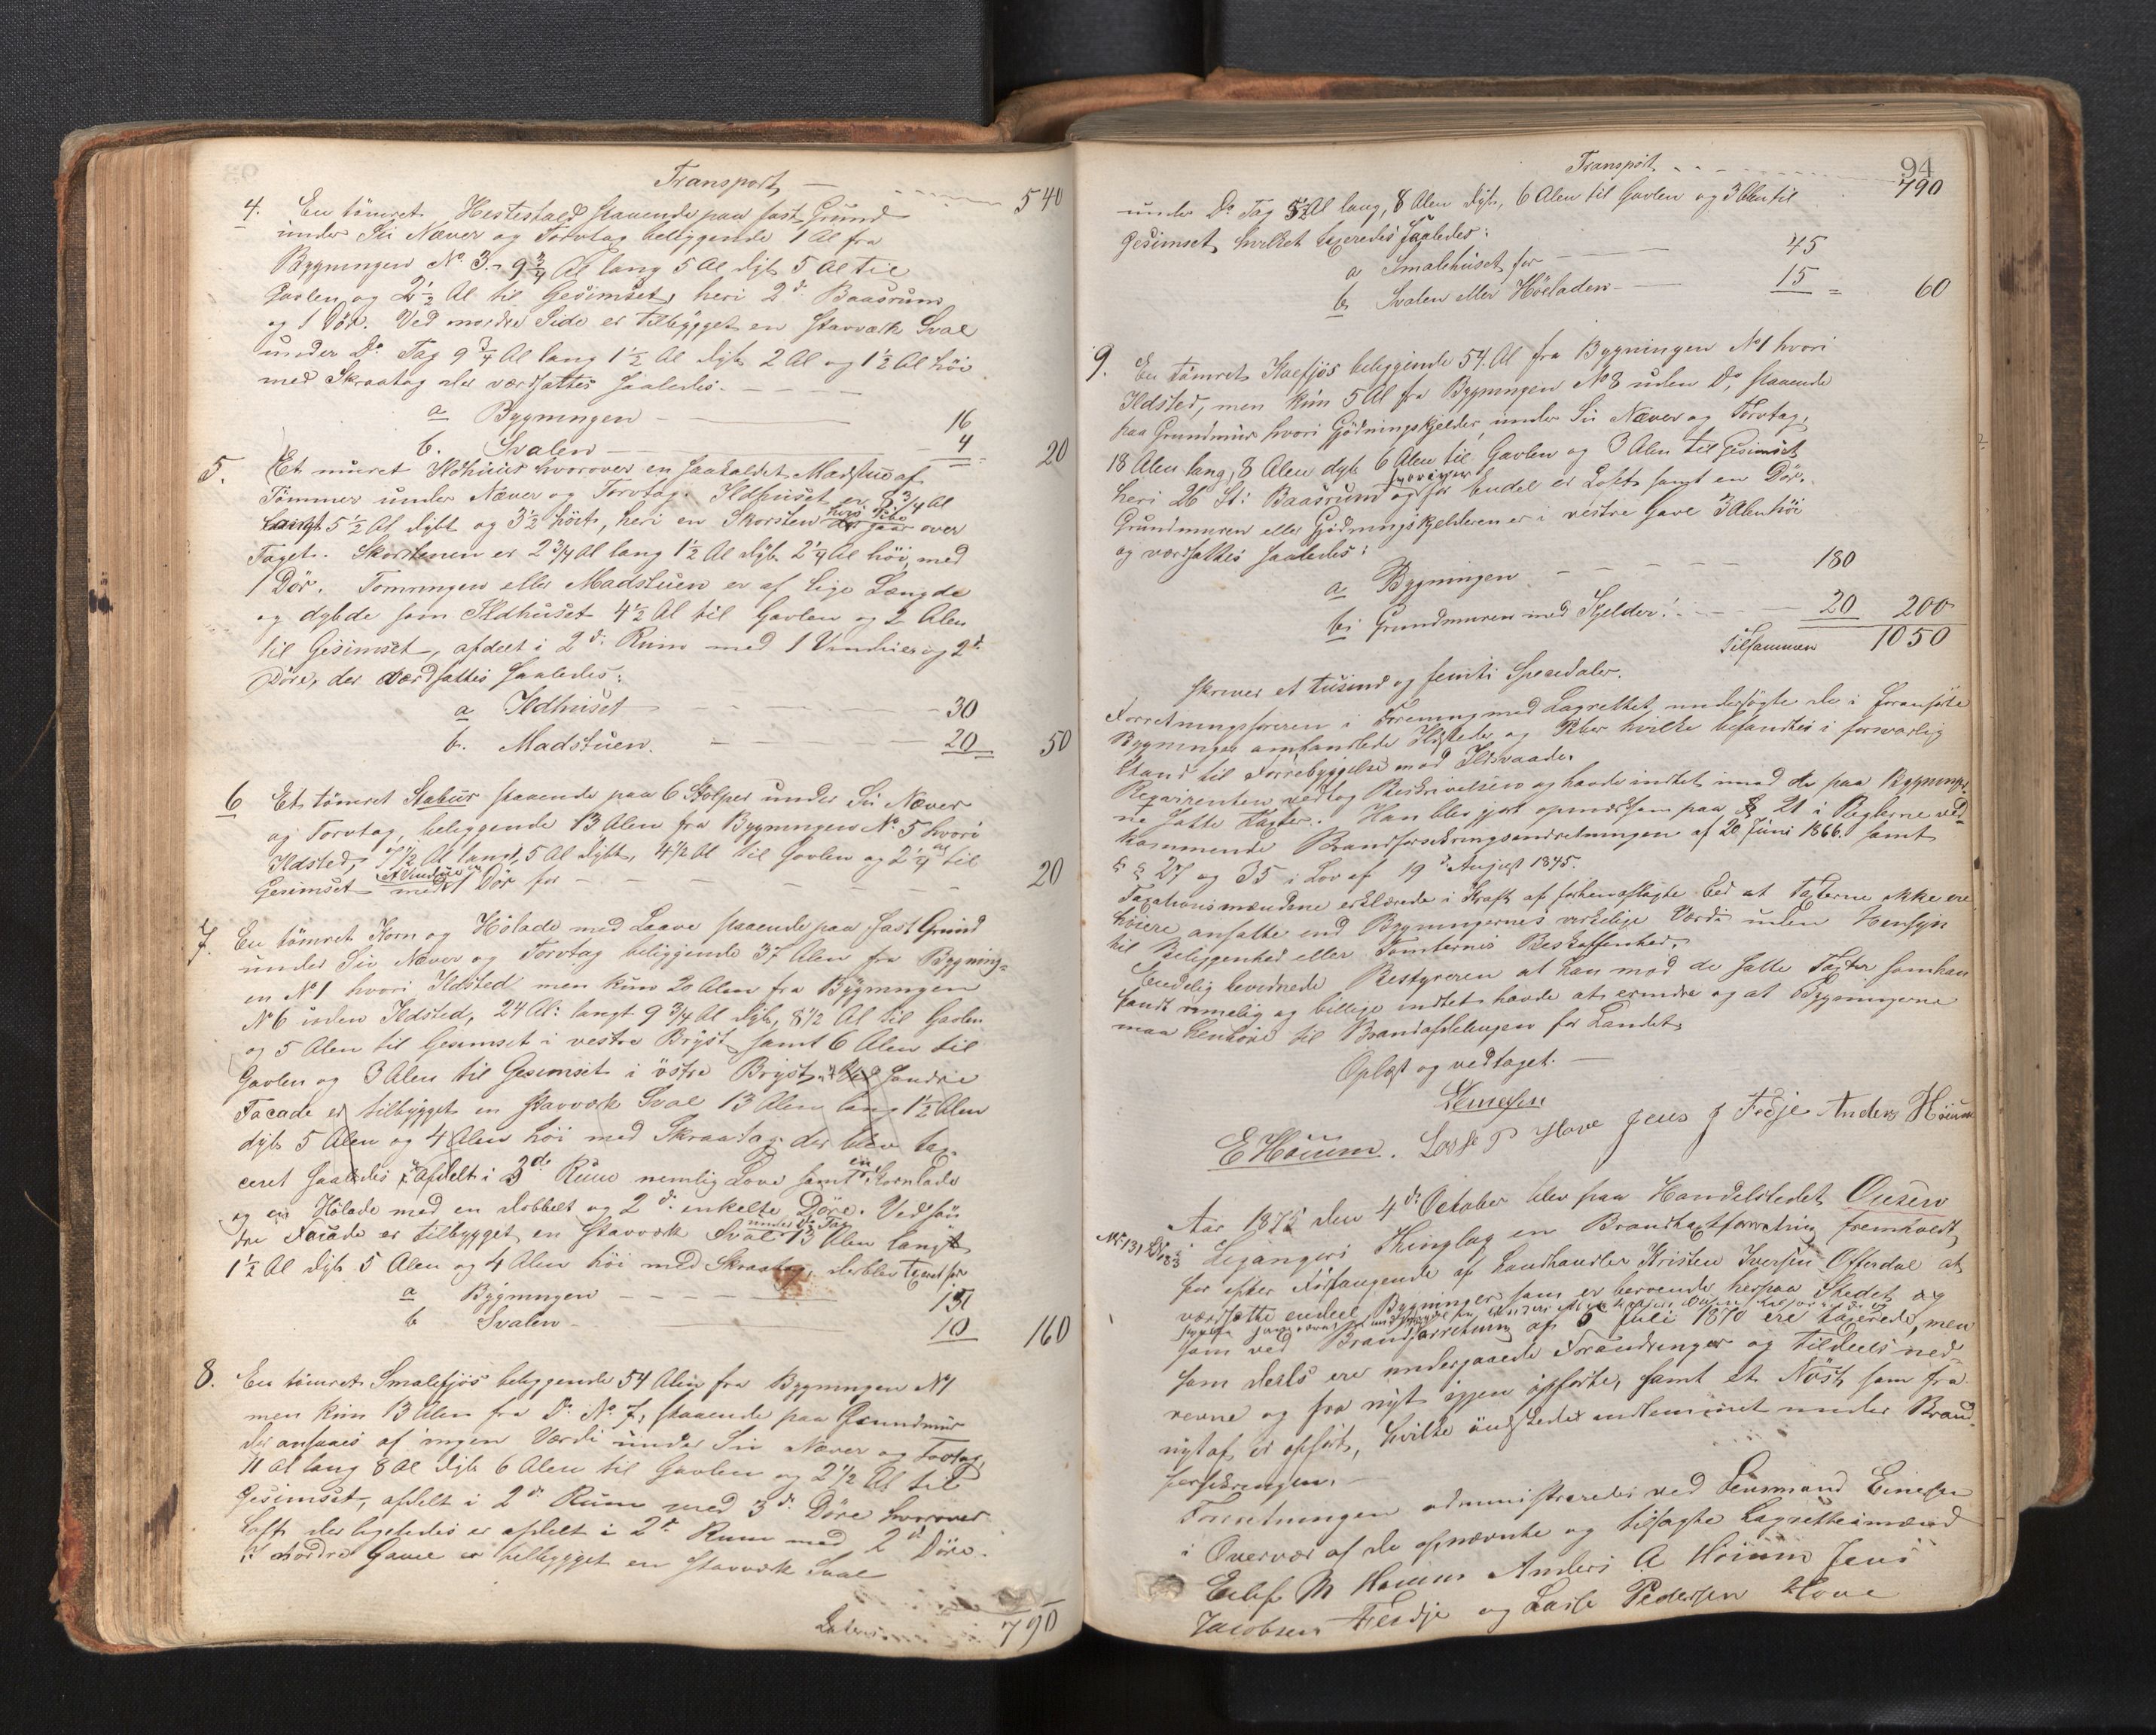 Transport 540
4. En tömret Hestestald staaende paa fast Grund
under Su Næver og Torvtag beliggende 1 Al fra
Bygningen No 3. 9 3/4 Al lang 5 Al dyb 5 Al til
Gavlen og 2 1/2 Al til Gesimset, heri 2de Baasrum
og 1 Dör. Ved nordre Side er tilbygget en Stavværk Sval
under Do Tag 9 3/4 Al lang 1 1/2 Al dyb 2 Al og 1 1/2 Al höi
med Skraatag der værdsattes saaledes.
a Bygningen 16
b. Svalen 4 20
5. Et muret Ildhuus hvorover en saakaldet Madstue af
Tömmer under Næver og Torvtag. Ildhuset er 8 3/4 Al
langt 5 1/2 Al dybt og 3 1/2 höit, heri en Skorsten hvis Pibe gaar over
Taget. Skorstenen er 2 3/4 Al lang 1 1/2 Al dyb 2 1/4 Al höi, med
1 Dör. Tömringen eller Madstuen er af lige Længde
og dybde som Ildhuset 4 1/2 Al til Gavlen og 2 Alen
til Gesimset, afdeelt i 2de Rum med 1 Vindue og 2de
Döre, der værdsattes saaledes:
a Ildhuset 30
b. Madstuen. 20 50
6 Et tömret Stabur staaende paa 6 Stolper under Su Næver
og Torvtag, beliggende 13 Alen fra Bygningen No 5 hvori
Ildsted 7 1/2 Al langt, 5 Al dybt, 4 1/2 Al til Gavlen og 2 1/4 Al til
Gesimset med et Vindue og 1 Dör for 20
7. En tömret Korn og Hölade med Laave staaende paa fast Grund
under Su Næver og Torvtag beliggende 37 Alen fra Bygning-
en No 1 hvori Ildsted men kun 20 Alen fra Bygningen
No 6 uden Ildsted, 24 Al: langt 9 3/4 Al dyb, 8 1/2 Al til Gavlen
og 5 Alen til Gesimset i vestre Bryst samt 6 Alen til
Gavlen og 3 Alen til Gesimset i östre Bryst, Ved Söndre
Facade er tilbygget en Stavværk Sval 13 Alen lang 1 1/2 Alen
dyb 5 Alen og 4 Alen höi med Skraatag der blev tax-
ceret saaledes afdelt i 3de Rum nemlig Love samt en Kornlade
og en Hölade med en dobbelt og 2de enkelte Döre. Ved sön
dre Facade er tilbygget en Stavværk Sval under Do Tag 13 Alen langt
1 1/2 Al dyb 5 Alen og 4 Alen höi med Skraatag, der blev taxeret for
a Bygningen 150
b Svalen 10 160
8. En tömret Smalefjös beliggende 54 Alen fra Bygningen No 1
men kun 13 Alen fra Do No 7, staaende paa Grundmur
der ansaaes af ingen Værdi under Su Næver og Torvtag,
11 Al lang 8 Al dyb 6 Alen til Gavlen og 2 1/2 Al til
Gesimset, afdelt i 2de Rum med 3de Döre hvorover
Loft der ligeledes er afdelt i 2de Rum med 2de Döre.
I nordre Gavl er tilbygget en Stavværk Sval
Lateris 790
94
Transport 790
under Do Tag 5 1/2 Al lang, 8 Alen dyb, 6 Alen til Gavlen og 3 Alen til
Gesimset, hvilket taxeredes saaledes:
a Smalehuset for 45
b Svalen eller Höeladen 15 60
9. En tömret Kuefjös beliggende 54. Al fra Bygningen No 1 hvori
Ildsted, men kun 5 Al fra Bygningen No 8 uden Do, staaende
paa Grundmur hvori Gjödningskjelder under Su Næver og Torvtag,
18 Alen lang, 8 Alen dyb 6 Alen til Gavlen og 3 Alen til Gesimset
heri 26 St: Baasrum og for Endel er Loft samt en Dör.
Grundmuren eller Gjödningskjelderen er i vestre Gavl 3 Alen höi
og værdsattes saaledes:
a Bygningen 180
b. Grundmuren med Kjelder 20 200
Tilsammen 1050
skriver et tusind og femti Speciedaler.
Forretningsföreren i Forening med Lagrettet, undersögte de i foranförte
Bygninger omhandlede Ildsteder og Piber hvilke befandtes i forsvarlig
Stand til Forrebyggelse mod Ildsvaade.
Reqvirenten vedtog Beskrivelsen og havde indtet imod de paa Bygninger-
ne satte Taxter. Han blev gjort opmærksom paa § 21 i Reglerne ved-
kommende Brandforsikringsindretningen af 20 Juni 1866. samt
§ § 27 og 35 i Lov af 19de August 1845.
Taxationsmændene erklærede i Kraft af forhen aflagte Eed at Taxterne ikke ere
höiere ansatte end Bygningernes virkelige Værdi uden Hensyn
til Beliggenhed eller Tomternes Beskaffenhed.
Endelig bevidnede Bestyreren at han mod de satte Taxter som han
fandt rimelig og billige indtet havde at erindre og at Bygningerne
maa henhöre til Brandafdelingen for Landet,
Oplæst og vedtaget.
Einesen
E Höium. Lasse P Hove Jens J Fedje Anders Höium
Aar 1875 den 4de October blev paa Handelstedet Ousen
No 131 Leganger Thinglag en Brandtaxtforretning fremholdt,
for efter Forlangende af Landhandler Kristen Iversen Offerdal at
værdsætte endeel Bygninger som er beroende herpaa Stedet og
som ved Brandforretning af 5 Juli 1870 ere taxerede, men
som deels ere undergaaede Forandringer og tildeels ned-
revne og fra nyt igjen opförte, samt et Nöst som fra
nyt af er opfört, hvilke önskedes indlemmet under Brand-
forsikringen.
Forretningen administreredes ved Lensmand Einesen
i Overvær af de opnævnte og tilsagte Lagrettesmænd
Eilif M Höium Anders A. Höium Jens
Jacobsen Fedje og Lasse Pedersen Hove